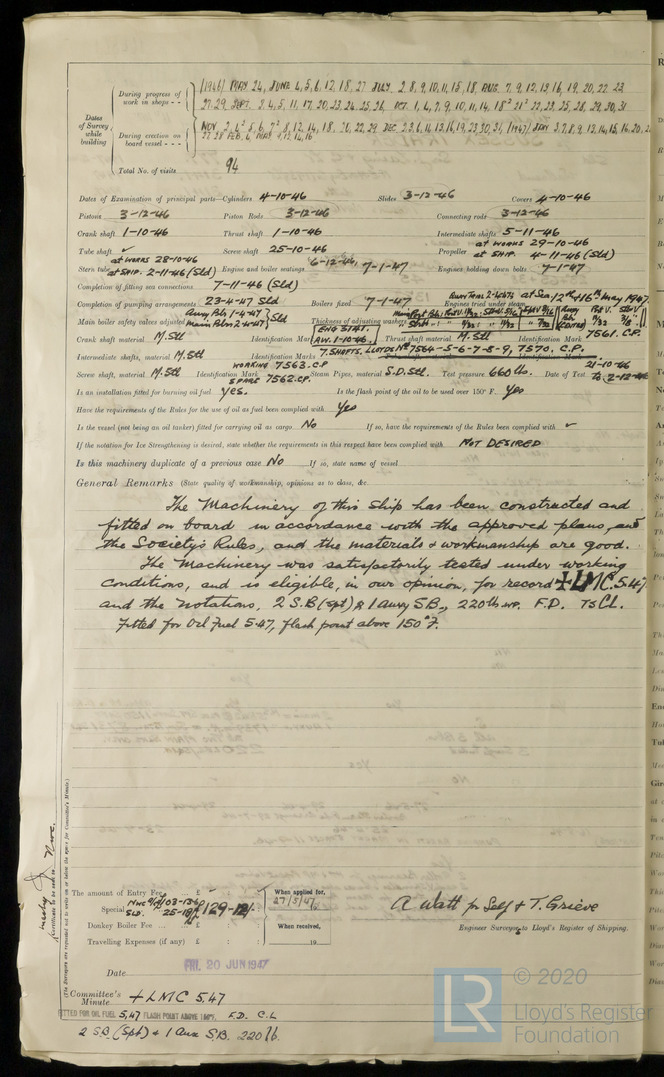 (1946) MAY 24, JUNE 4, 5, 6, 12, 18, 27 JULY 2, 8, 9, 10, 11, 15, 18 AUG. 7, 9, 12, 13, 16, 19, 20, 22, 23
During progress of work in shops - -
27. 29. SEPT. 2. 4, 5, 11, 17, 20, 23, 24, 25, 26, OCT. 1, 4, 7, 9, 10, 11, 14, 18² 21² 22, 23, 25, 28, 29, 30, 31
Dates of Survey while building
During erection on board vessel - - -
Total No. of visits 94
Dates of Examination of principal parts—Cylinders 4-10-46 Slides 3-12-46 Covers 4-10-46
Pistons 3-12-46 Piston Rods 3-12-46 Connecting rods 3-12-46
Crank shaft 1-10-46 Thrust shaft 1-10-46 Intermediate shafts 5-11-46
Tube shaft ✓ Screw shaft 25-10-46 Propeller at WORKS 29-10-46 at SHIP. 4-11-46 (Sld)
Stern tube at WORKS 28-10-46 at SHIP. 2-11-46 (Sld) Engine and boiler seatings 6-12-46, 7-1-47 Engines holding down bolts 7-1-47
Completion of fitting sea connections 7-11-46 (Sld)
Completion of pumping arrangements 23-4-47 Sld Boilers fixed 7-1-47 Engines tried under steam at Sea, 12th & 16th May 1947.
Main boiler safety valves adjusted Auxy Blr 1-4-47 Main Blrs 2-4-47 } Sld Thickness of adjusting washers
Crank shaft material M.Stl Identification Mark ENG 5141. A.W. 1-10-46. Thrust shaft material M.Stl. Identification Mark 7561. C.P.
Intermediate shafts, material M.Stl Identification Marks 7.SHAFTS. LLOYDS Nº 7564-5-6-7-8-9, 7570. C.P.
Screw shaft, material M.Stl Identification Mark WORKING 7563.C.P SPARE 7562.C.P. Steam Pipes, material S.D.Stl. Test pressure 660 lb. Date of Test 21-10-46 to 2-12-46
Is an installation fitted for burning oil fuel Yes. Is the flash point of the oil to be used over 150° F. Yes
Have the requirements of the Rules for the use of oil as fuel been complied with Yes
Is the vessel (not being an oil tanker) fitted for carrying oil as cargo No If so, have the requirements of the Rules been complied with ✓
If the notation for Ice Strengthening is desired, state whether the requirements in this respect have been complied with NOT DESIRED
Is this machinery duplicate of a previous case No If so, state name of vessel
General Remarks (State quality of workmanship, opinions as to class, &c.
The Machinery of this ship has been constructed and
fitted on board in accordance with the approved plans, and
the Society's Rules, and the materials & workmanship are good.
The Machinery was satisfactorily tested under working
conditions, and is eligible, in our opinion, for record + LMC. 5.47
and the notations, 2 S.B (Spt) & 1 Auxy S.B., 220 lb W.P. F.D. TS CL.
Fitted for Oil Fuel 5.47, flash point above 150°F.
(The Surveyors are requested not to write on or below the space for Committee's Minute.)
The amount of Entry Fee £ : : When applied for, 27/5/47
Special
Donkey Boiler Fee £ When received,
Travelling Expenses (if any) £ : : 19
A Watt for Self & T. Grieve
Engineer Surveyor to Lloyd's Register of Shipping.
Date FRI. 20 JUN 1947
Committee's Minute + LMC 5.47
FITTED FOR OIL FUEL 5,47 FLASH POINT ABOVE 150°F. F.D. C.L
2 S.B. (Spt) & 1 Aux S.B. 220 lb.
LR © 2020
Lloyd's Register
Foundation